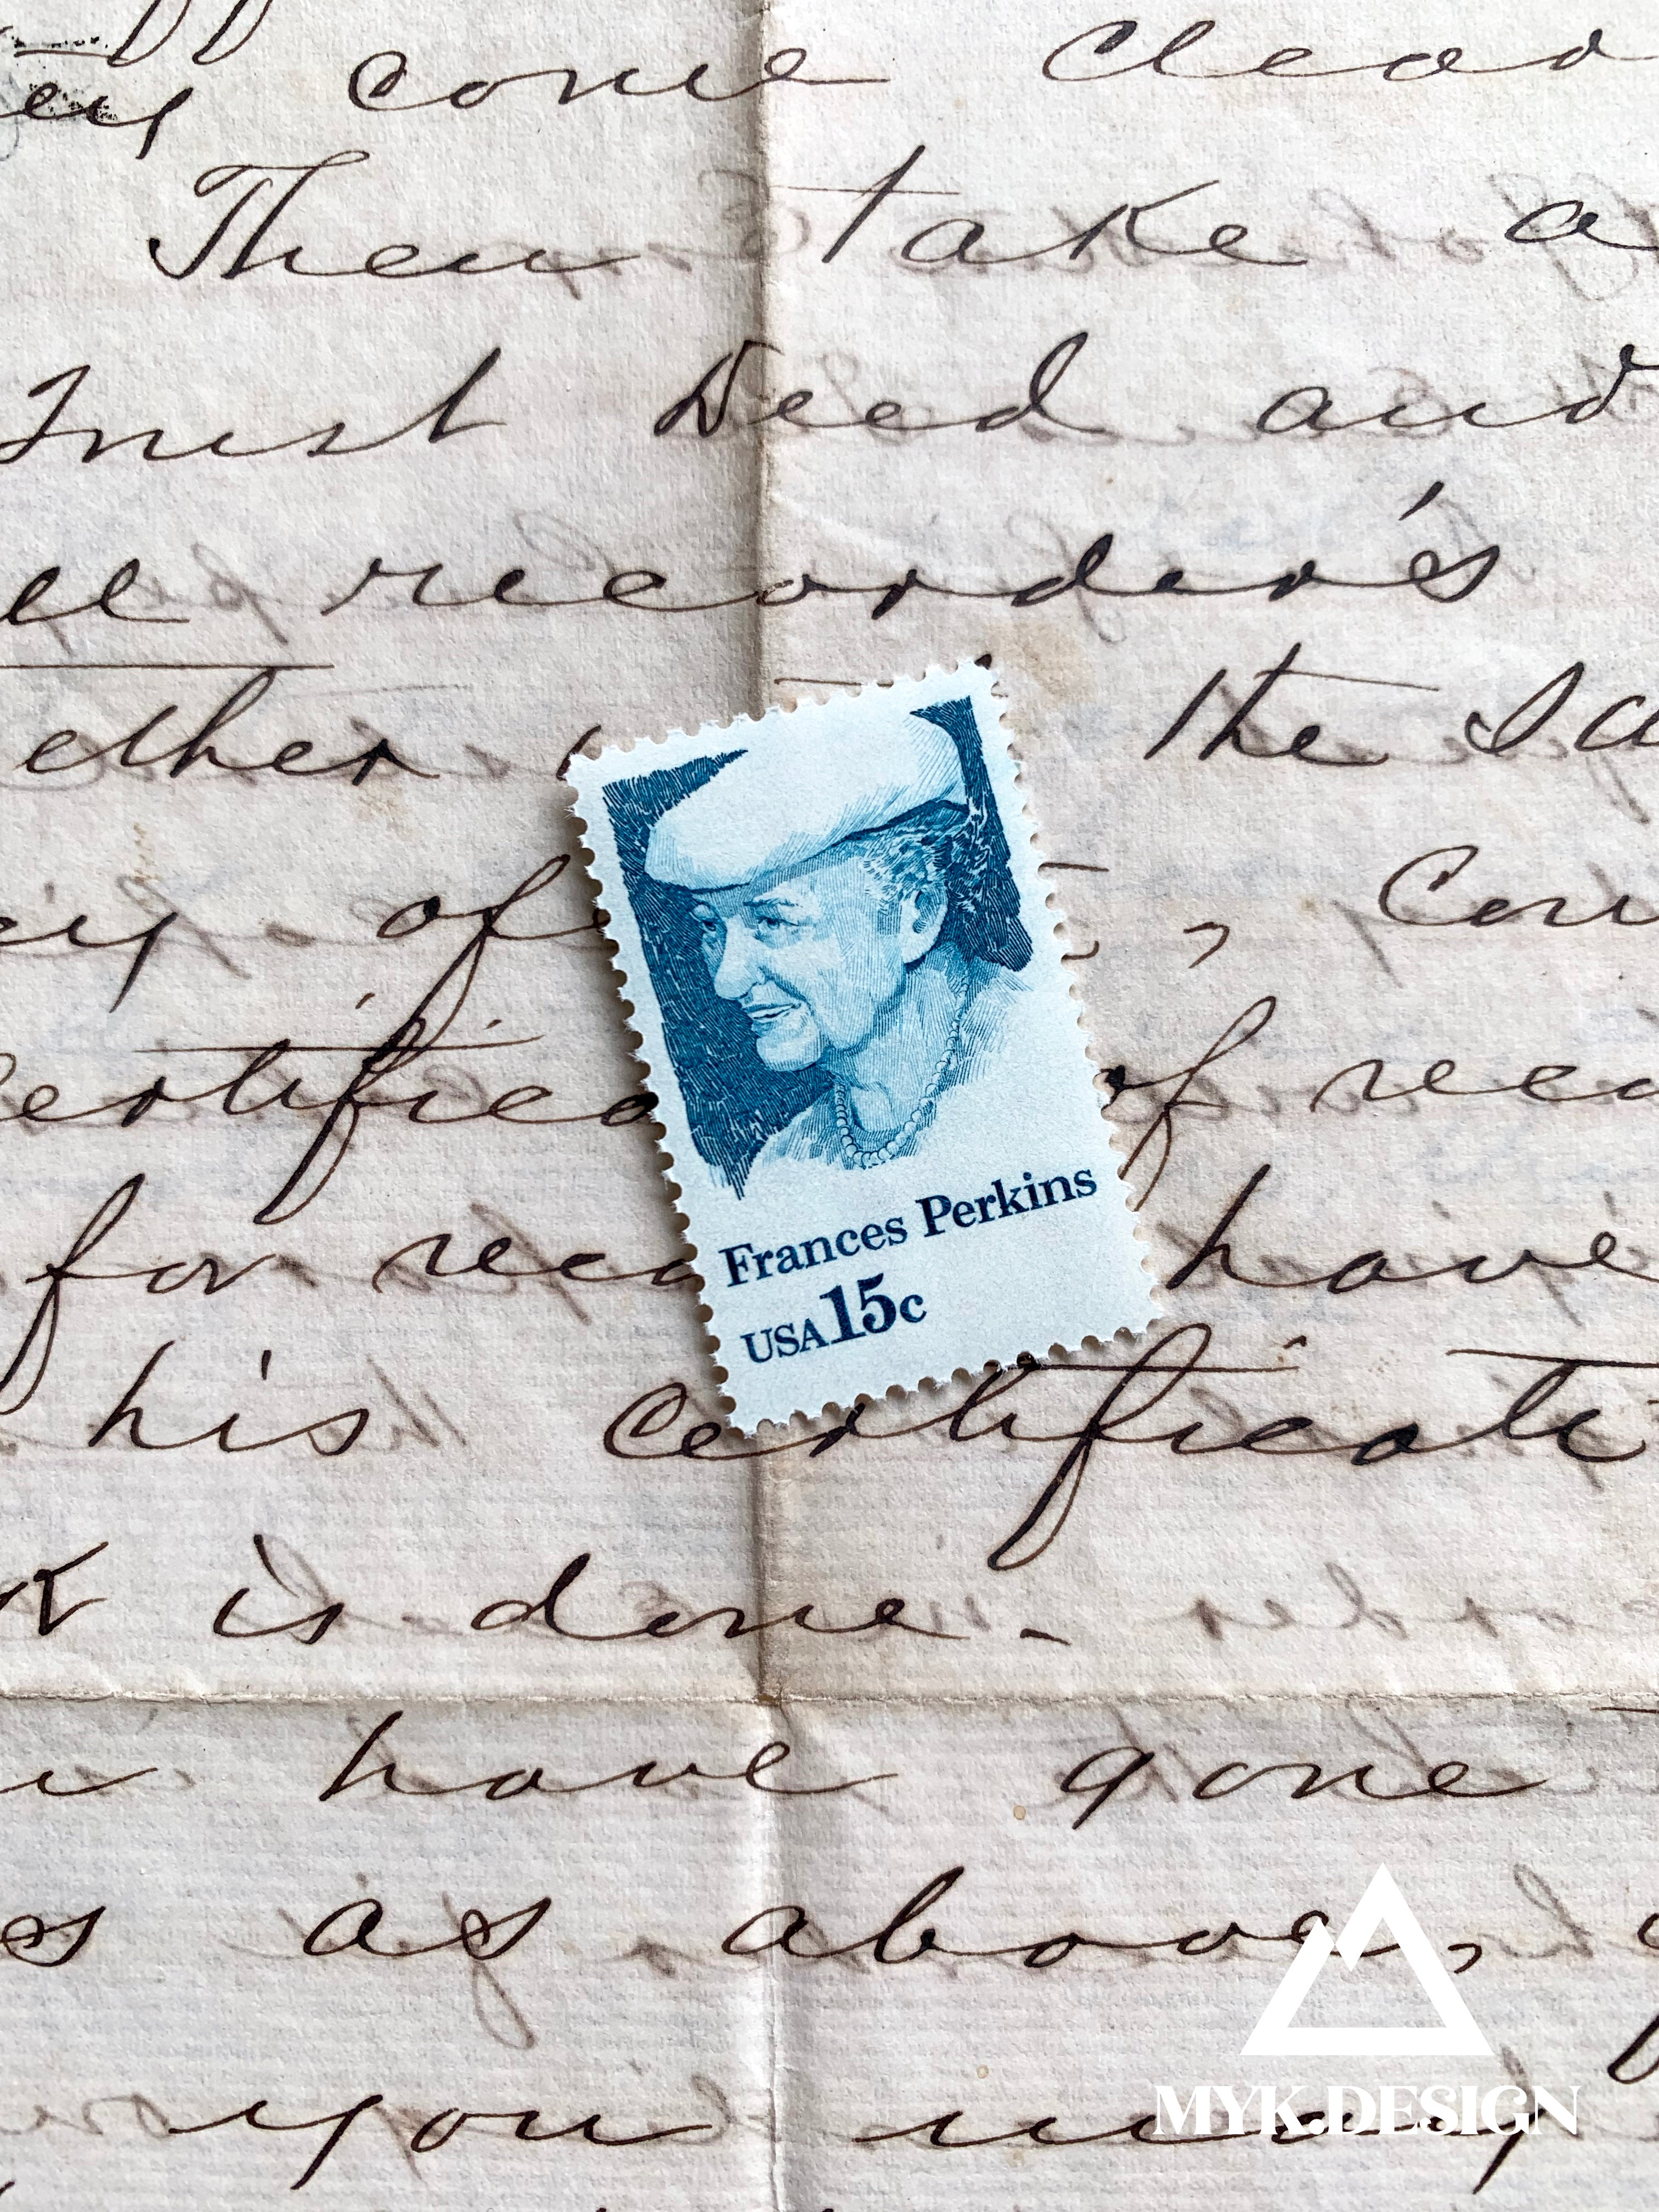 come clear
Then take a
Trust Deed and
recorder's
the
of , Con
of rec
for have
his certificate
is done.
have gone
as above,
you may
Frances Perkins
USA 15c
MYK.DESIGN